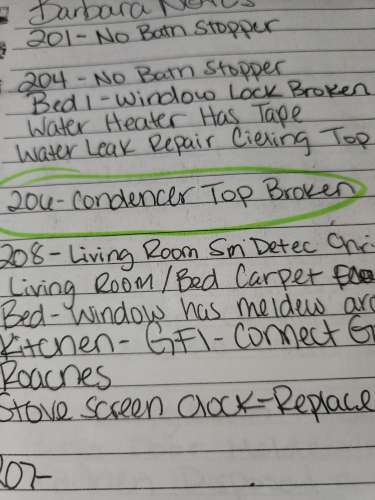 Barbara Notes
201- No Batn Stopper
204 - No Batn Stopper
Bed 1 - Window Lock Broken
Water Heater Has Tape
Water Leak Repair Cieling Top
206- Condencer Top Broken
208 - Living Room Sm Detec Chir
Living Room / Bed Carpet
Bed - Window has meldew aro
Kitchen - GFI - Connect G
Roaches
Stove screen Clock - Replace
207-